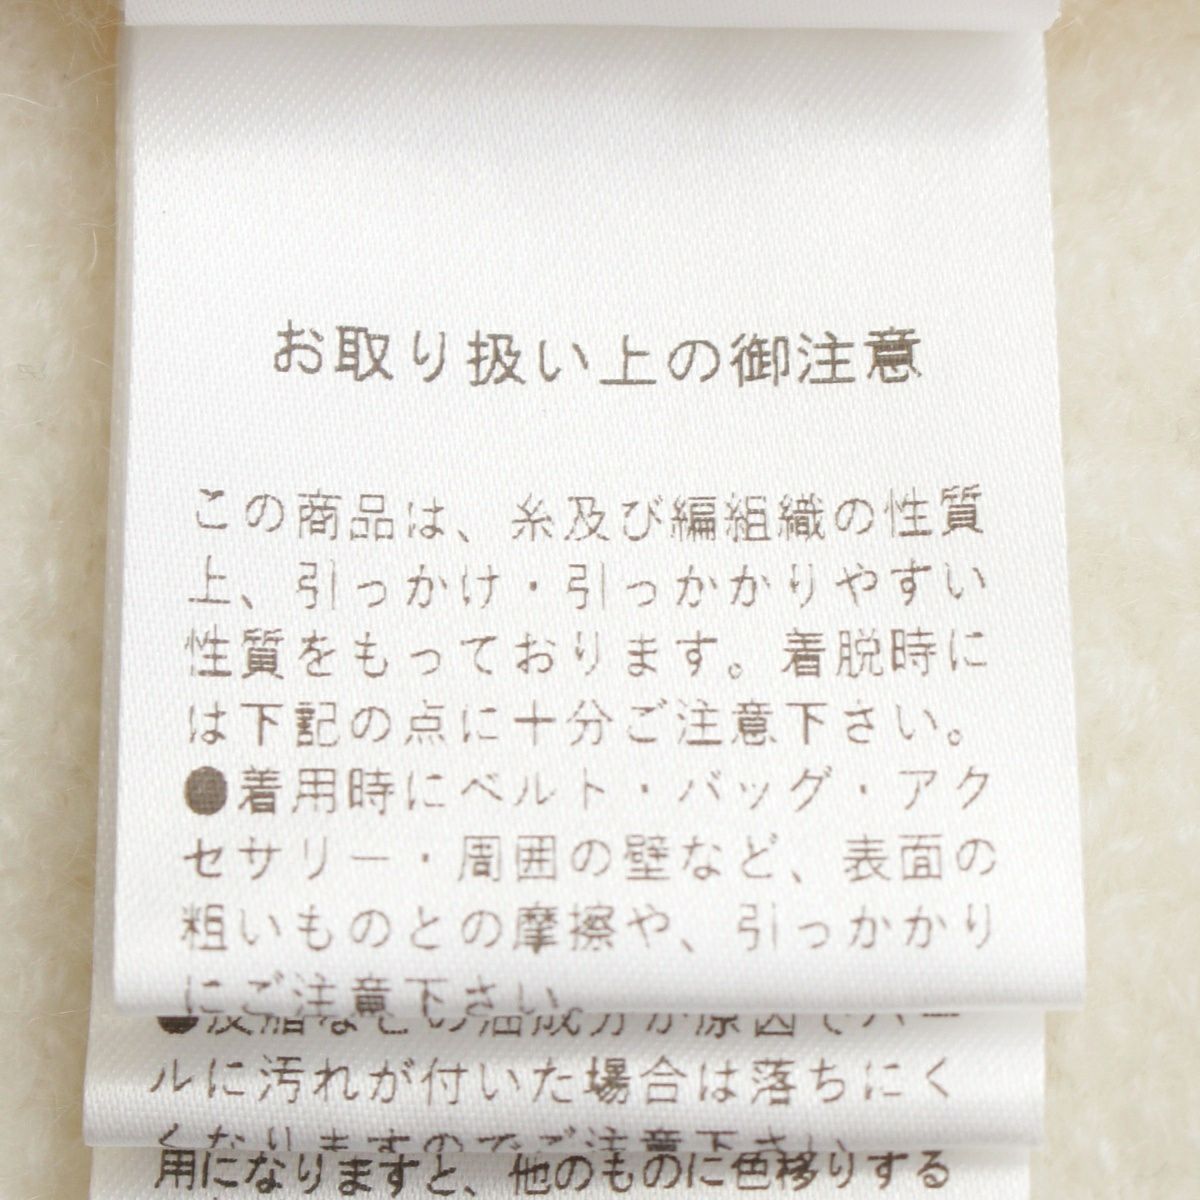 お取り扱い上の御注意
この商品は、糸及び編組織の性質
上、引っかけ・引っかかりやすい
性質をもっております。着脱時に
は下記の点に十分ご注意下さい。
●着用時にベルト・バッグ・アク
セサリー・周囲の壁など、表面の
粗いものとの摩擦や、引っかかり
にご注意下さい。
●皮脂などの油成分が原因でパー
ルに汚れが付いた場合は落ちにく
くなりますのでご注意下さい。
用になりますと、他のものに色移りする